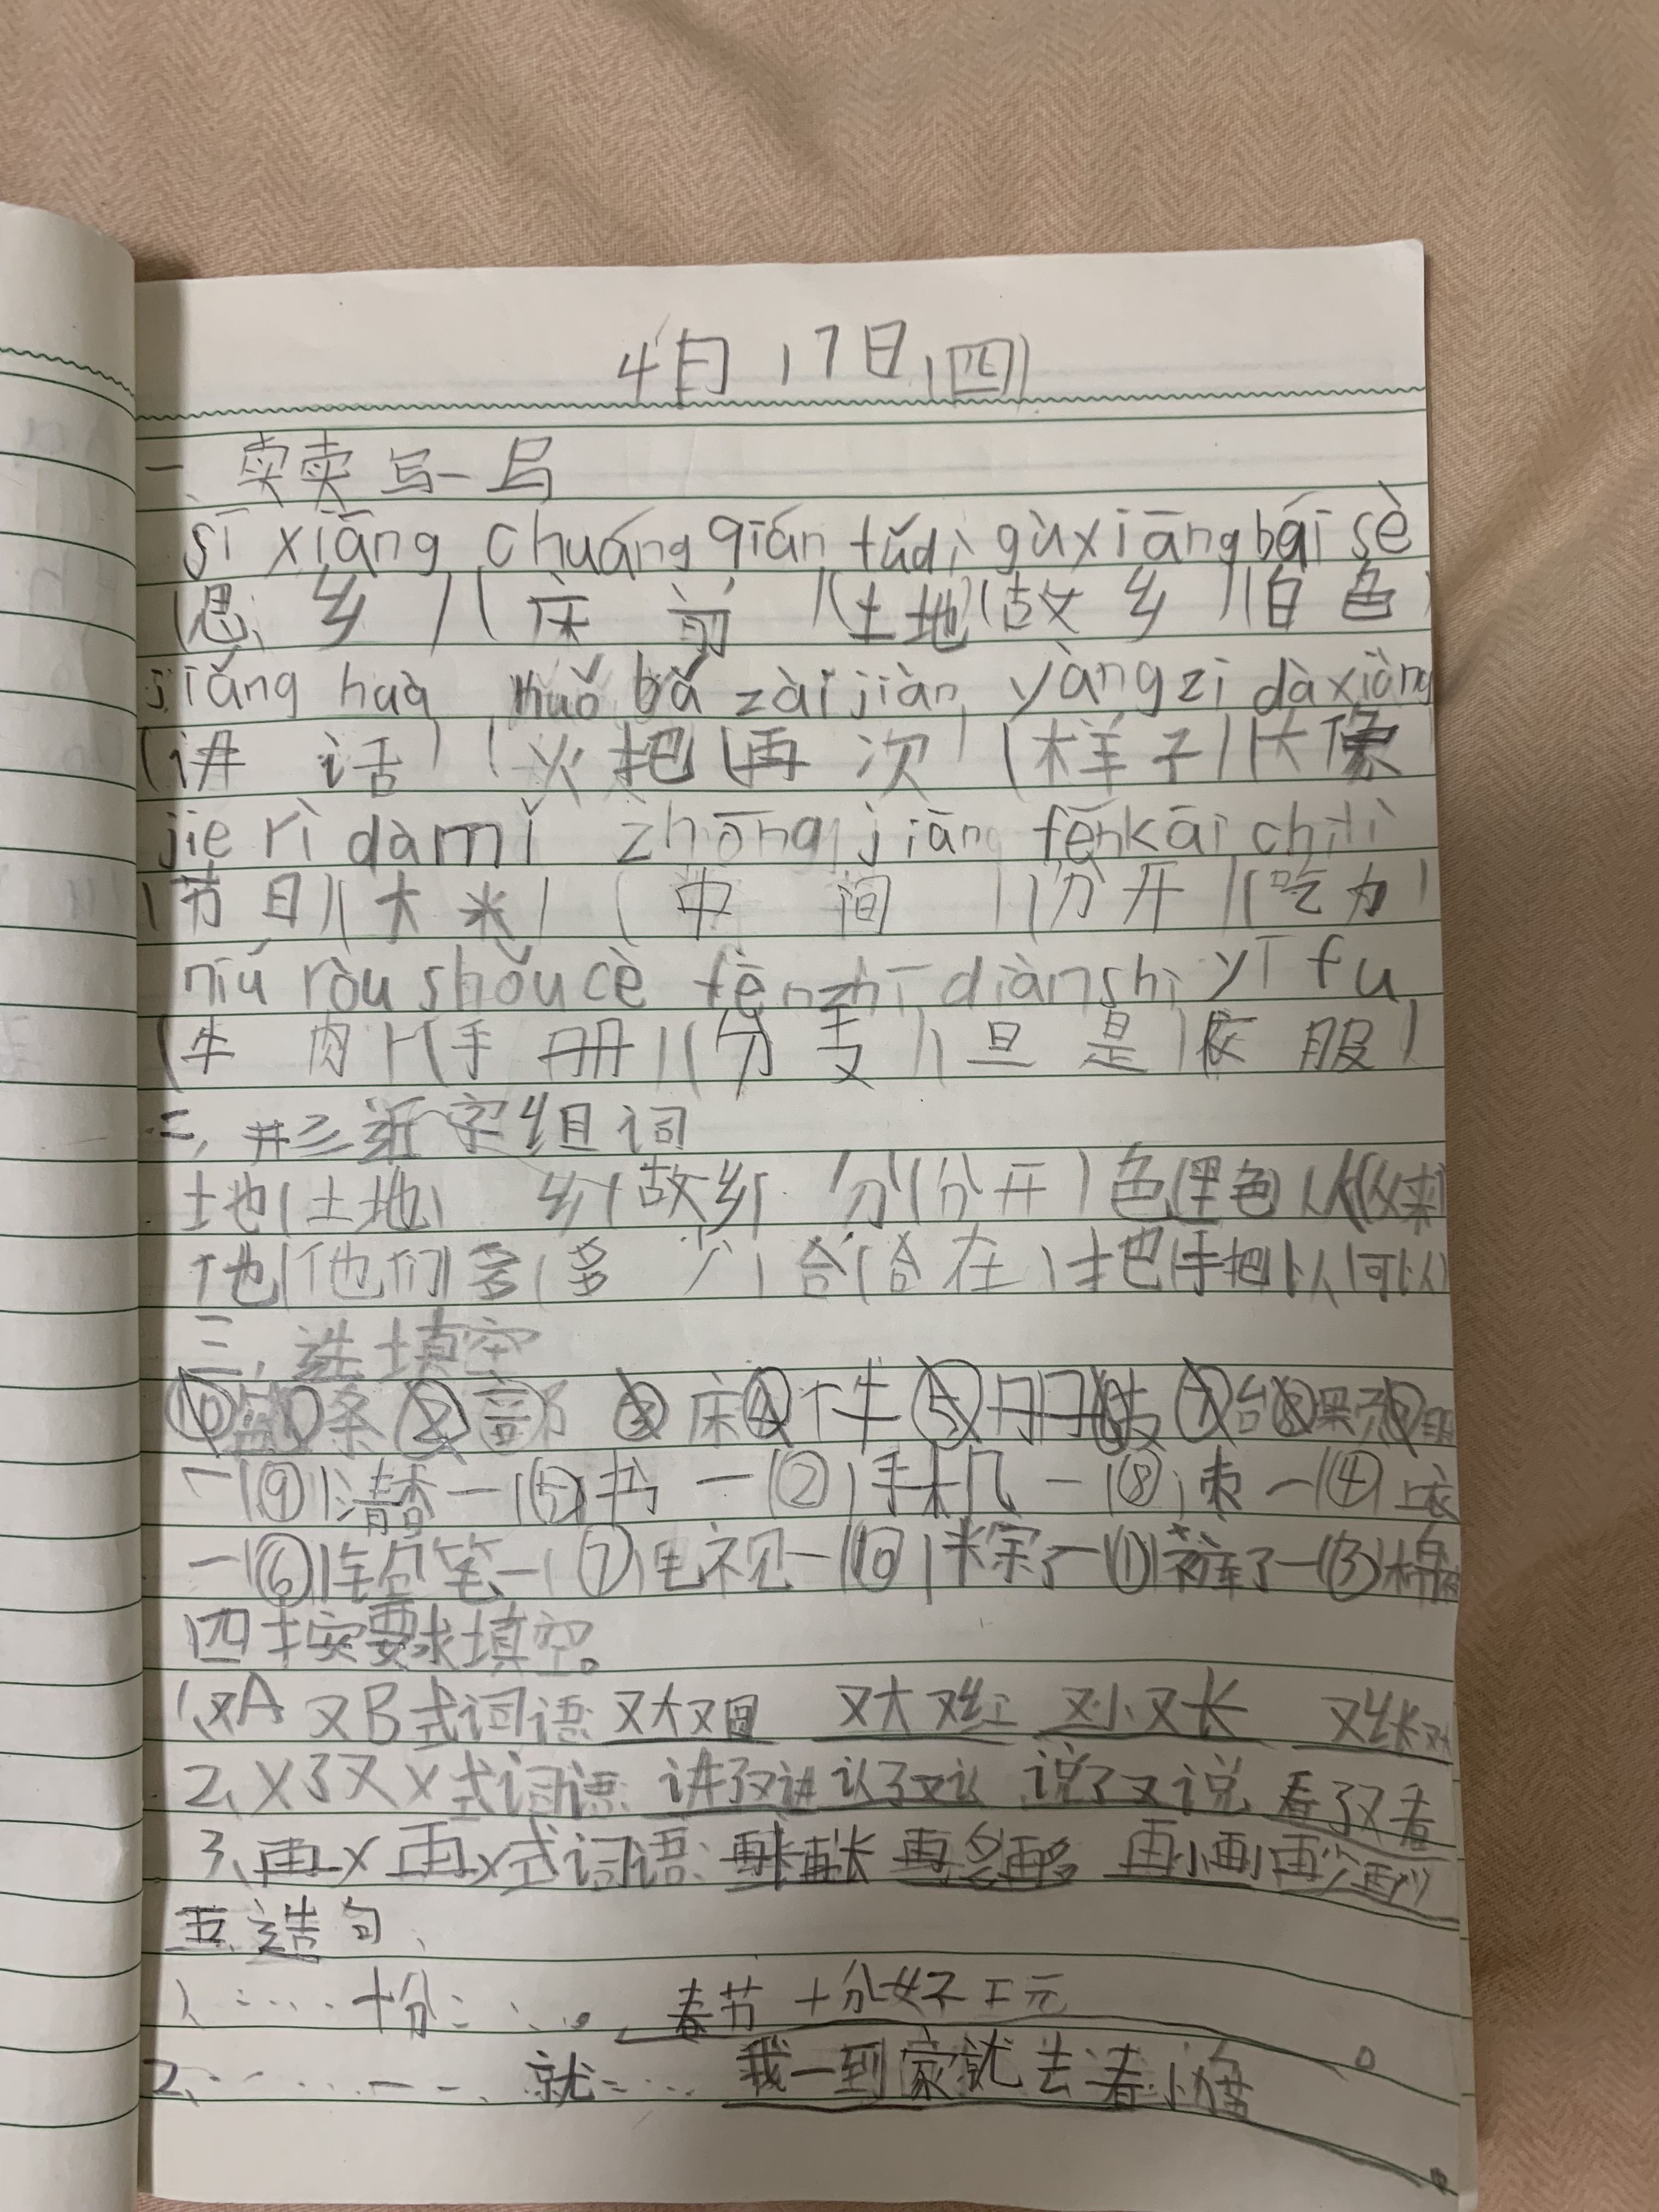 4月17日(四)
一、卖卖写一写
sī xiāng chuáng qián tǔdì gùxiāng bái sè
(思 乡)(床 前)(土地)(故 乡)(白 色)
jiǎng huà huǒ bǎ zài jiàn yàng zi dà xiàng
(讲 话)(火把)(再 次)(样 子)(大像
jie rì dà mǐ zhōng jiān fēn kāi chī lì
(节 日)(大 米)(中 间)(分 开)(吃 力)
niú ròu shǒu cè fēn zhī diàn shì yī fu
(牛 肉)(手 册)(分 支)(旦 是)(衣 服)
二、形近字组词
地(土地) 乡(故乡) 分(分开)色(黑色)从(从来)
他(他们)多(多 少)合(合在)把(手把)以(可以)
三、选填空
⑩盆①条②部③床④件⑤册⑥枝⑦台⑧颗⑨
一(⑨)清香一(⑤)书一(②)手机一(⑧)枣一(④)上衣
一(⑥)铅笔一(⑦)电视一(⑩)粽子一(①)裤子一(③)棉
四按要求填空。
1、又A又B式词语:又大又圆 又大又红 又小又长 又长又
2、X了又X式词语:讲了又讲 认了又认 说了又说 看了又看
3、再X再X式词语:再长再长 再多再多 再小再小 再少再少
五、造句、
1、…… 十分……。春节十分好王元
2、…… 一 …… 就…… 我一到家就去看小